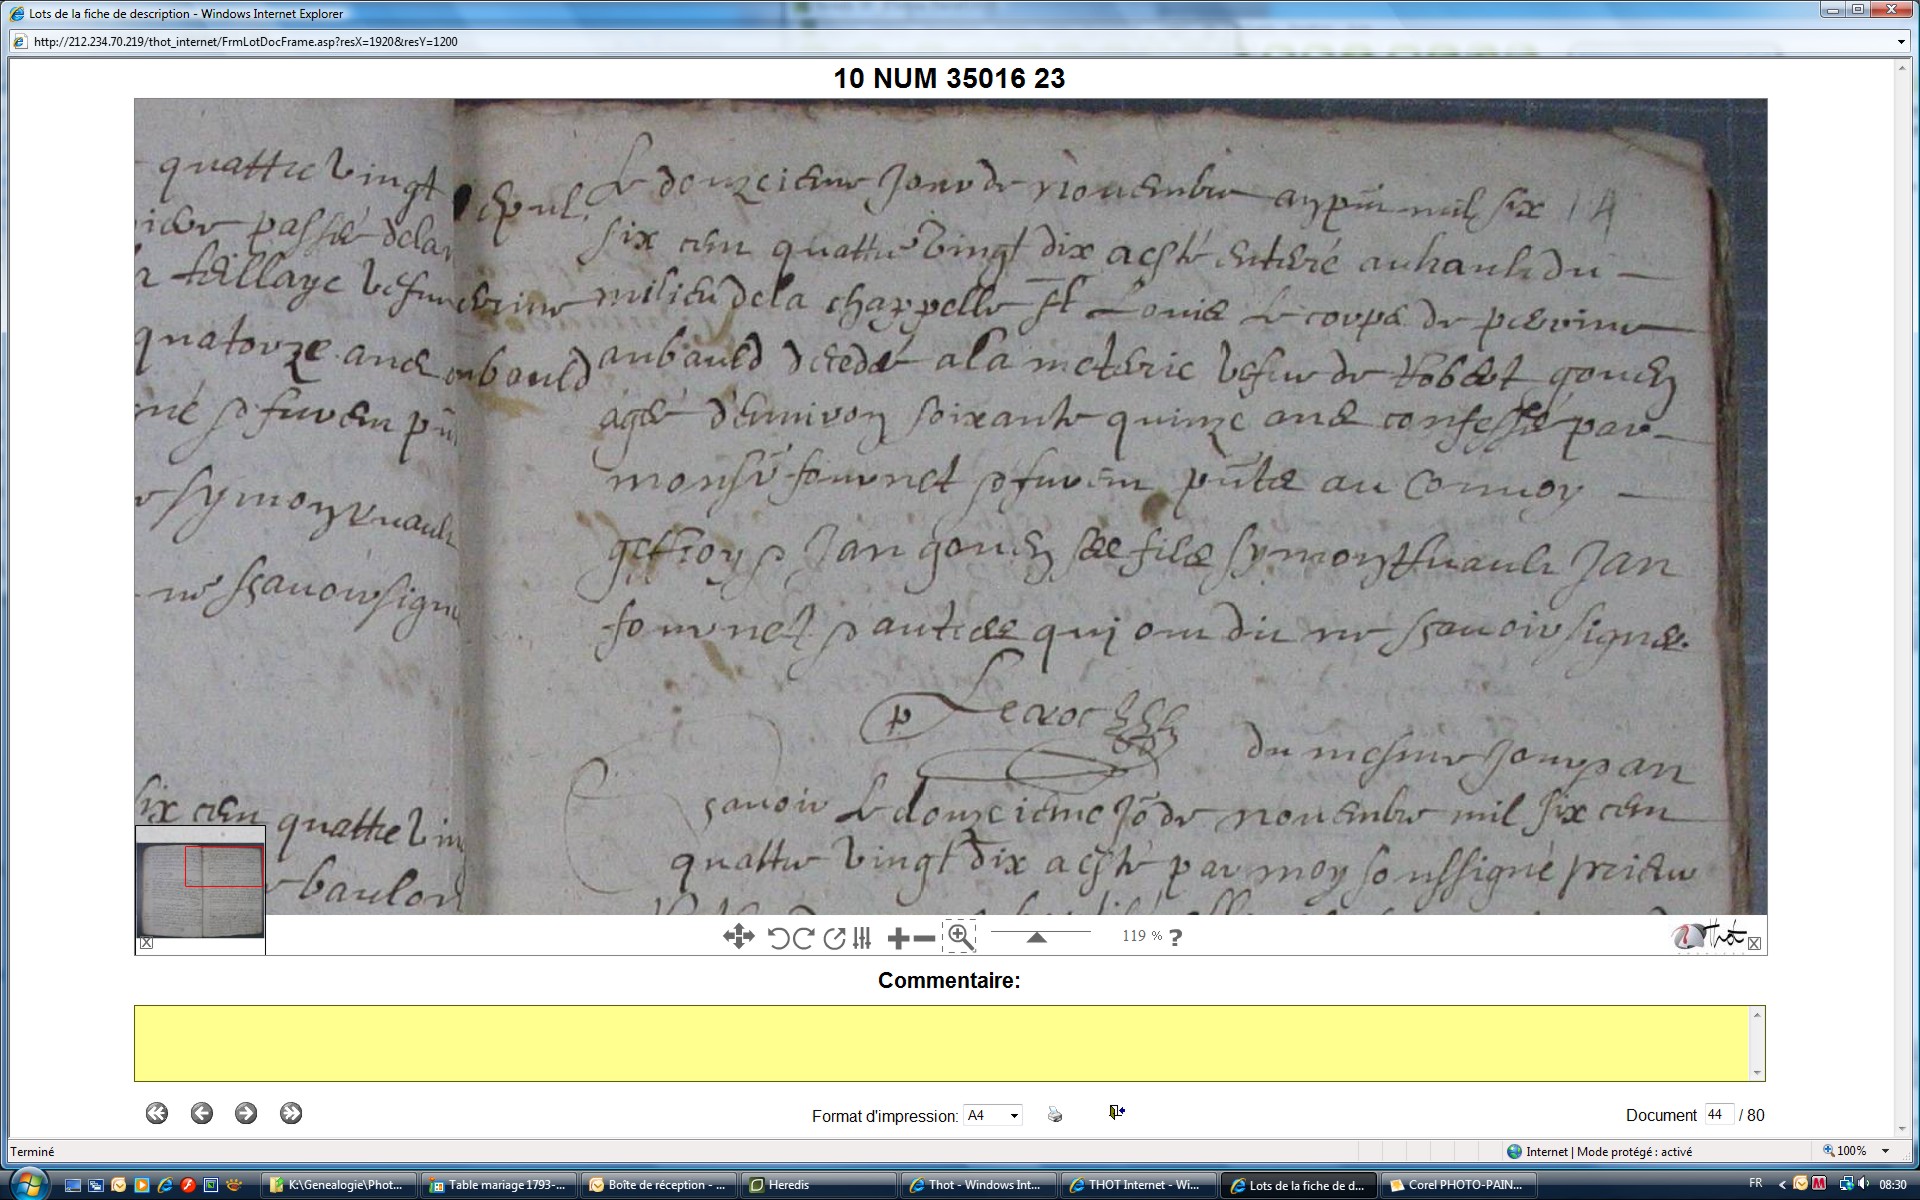 Lots de la fiche de description - Windows Internet Explorer
http://212.234.70.219/thot_internet/FrmLotDocFrame.asp?resX=1920&resY=1200
10 NUM 35016 23
quattre vingt
passé dela
teillaye vefu
quatorze ans
né p furen pñ
symon
ne sçavoir sign
six cen quattre vin
baulon
sepul.
perrine
aubauld
Le douzcieme jour de novembre mil six 14
six cen quattre vingt dix a esté enteré au hault du
milieu de la chappelle st Louis le corps de perrine
aubauld decedé a la meterie vefue de Robert gouen
agée d'environ soixante quinze ans confessé par
monsr fournet p furem pñts au convoy
geffroy p Jan gouen ses fils symon Jan
fournet p autres qui on dit ne sçavoir signer.
p Lecroc
du mesme jour p an
sçavoir Le douzcieme jo de novembre mil six cen
quattre vingt dix a esté par moy soussigné prieur
119 % ?
Thot
Commentaire:
Format d'impression: A4
Document 44 / 80
Terminé
Internet | Mode protégé : activé
100%
K:\Genealogie\Phot...
Table mariage 1793-...
Boîte de réception - ...
Heredis
Thot - Windows Int...
THOT Internet - Wi...
Lots de la fiche de d...
Corel PHOTO-PAIN...
FR
08:30